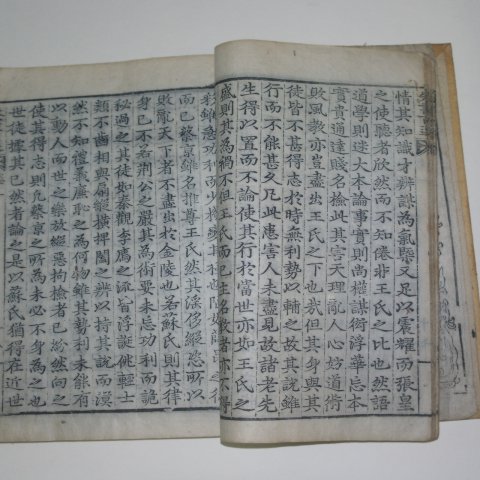 情其知識才辨謀為氣槩又足以震耀而張皇
之使聽者欣然而不知倦非王氏之比也然語
道學則迷大本論事實則尚權謀衒浮華忘本
實貴通達賤名檢此其害天理亂人心妨道術
敗風教亦豈盡出王氏之下也哉但其身與其
徒皆不甚得志於時無利勢以輔之故其說雖
行而不能甚久凡此患害人未盡見故諸老先
生得以置而不論使其行於當世亦如王氏之
盛則其為禍不但王氏而已主名教者亦不得
而已蔡京雖名推尊王氏然其淫侈縱恣所以
敗亂天下者不盡出於金陵也若蘇氏則其律
身已不若荊公之嚴其為術要未忘功利而詭
秘過之其徒如秦觀李廌之流皆浮誕佻輕士
類不齒相與扇縱橫捭闔之辨以持其說而漠
然不知禮義廉恥之為何物雖其勢利未能有
以動人而世之樂放縱惡拘檢者已紛然向之
使其得志則凡蔡京之所為未必不身為之也
世徒據其已然者論之是以蘇氏猶得在近世